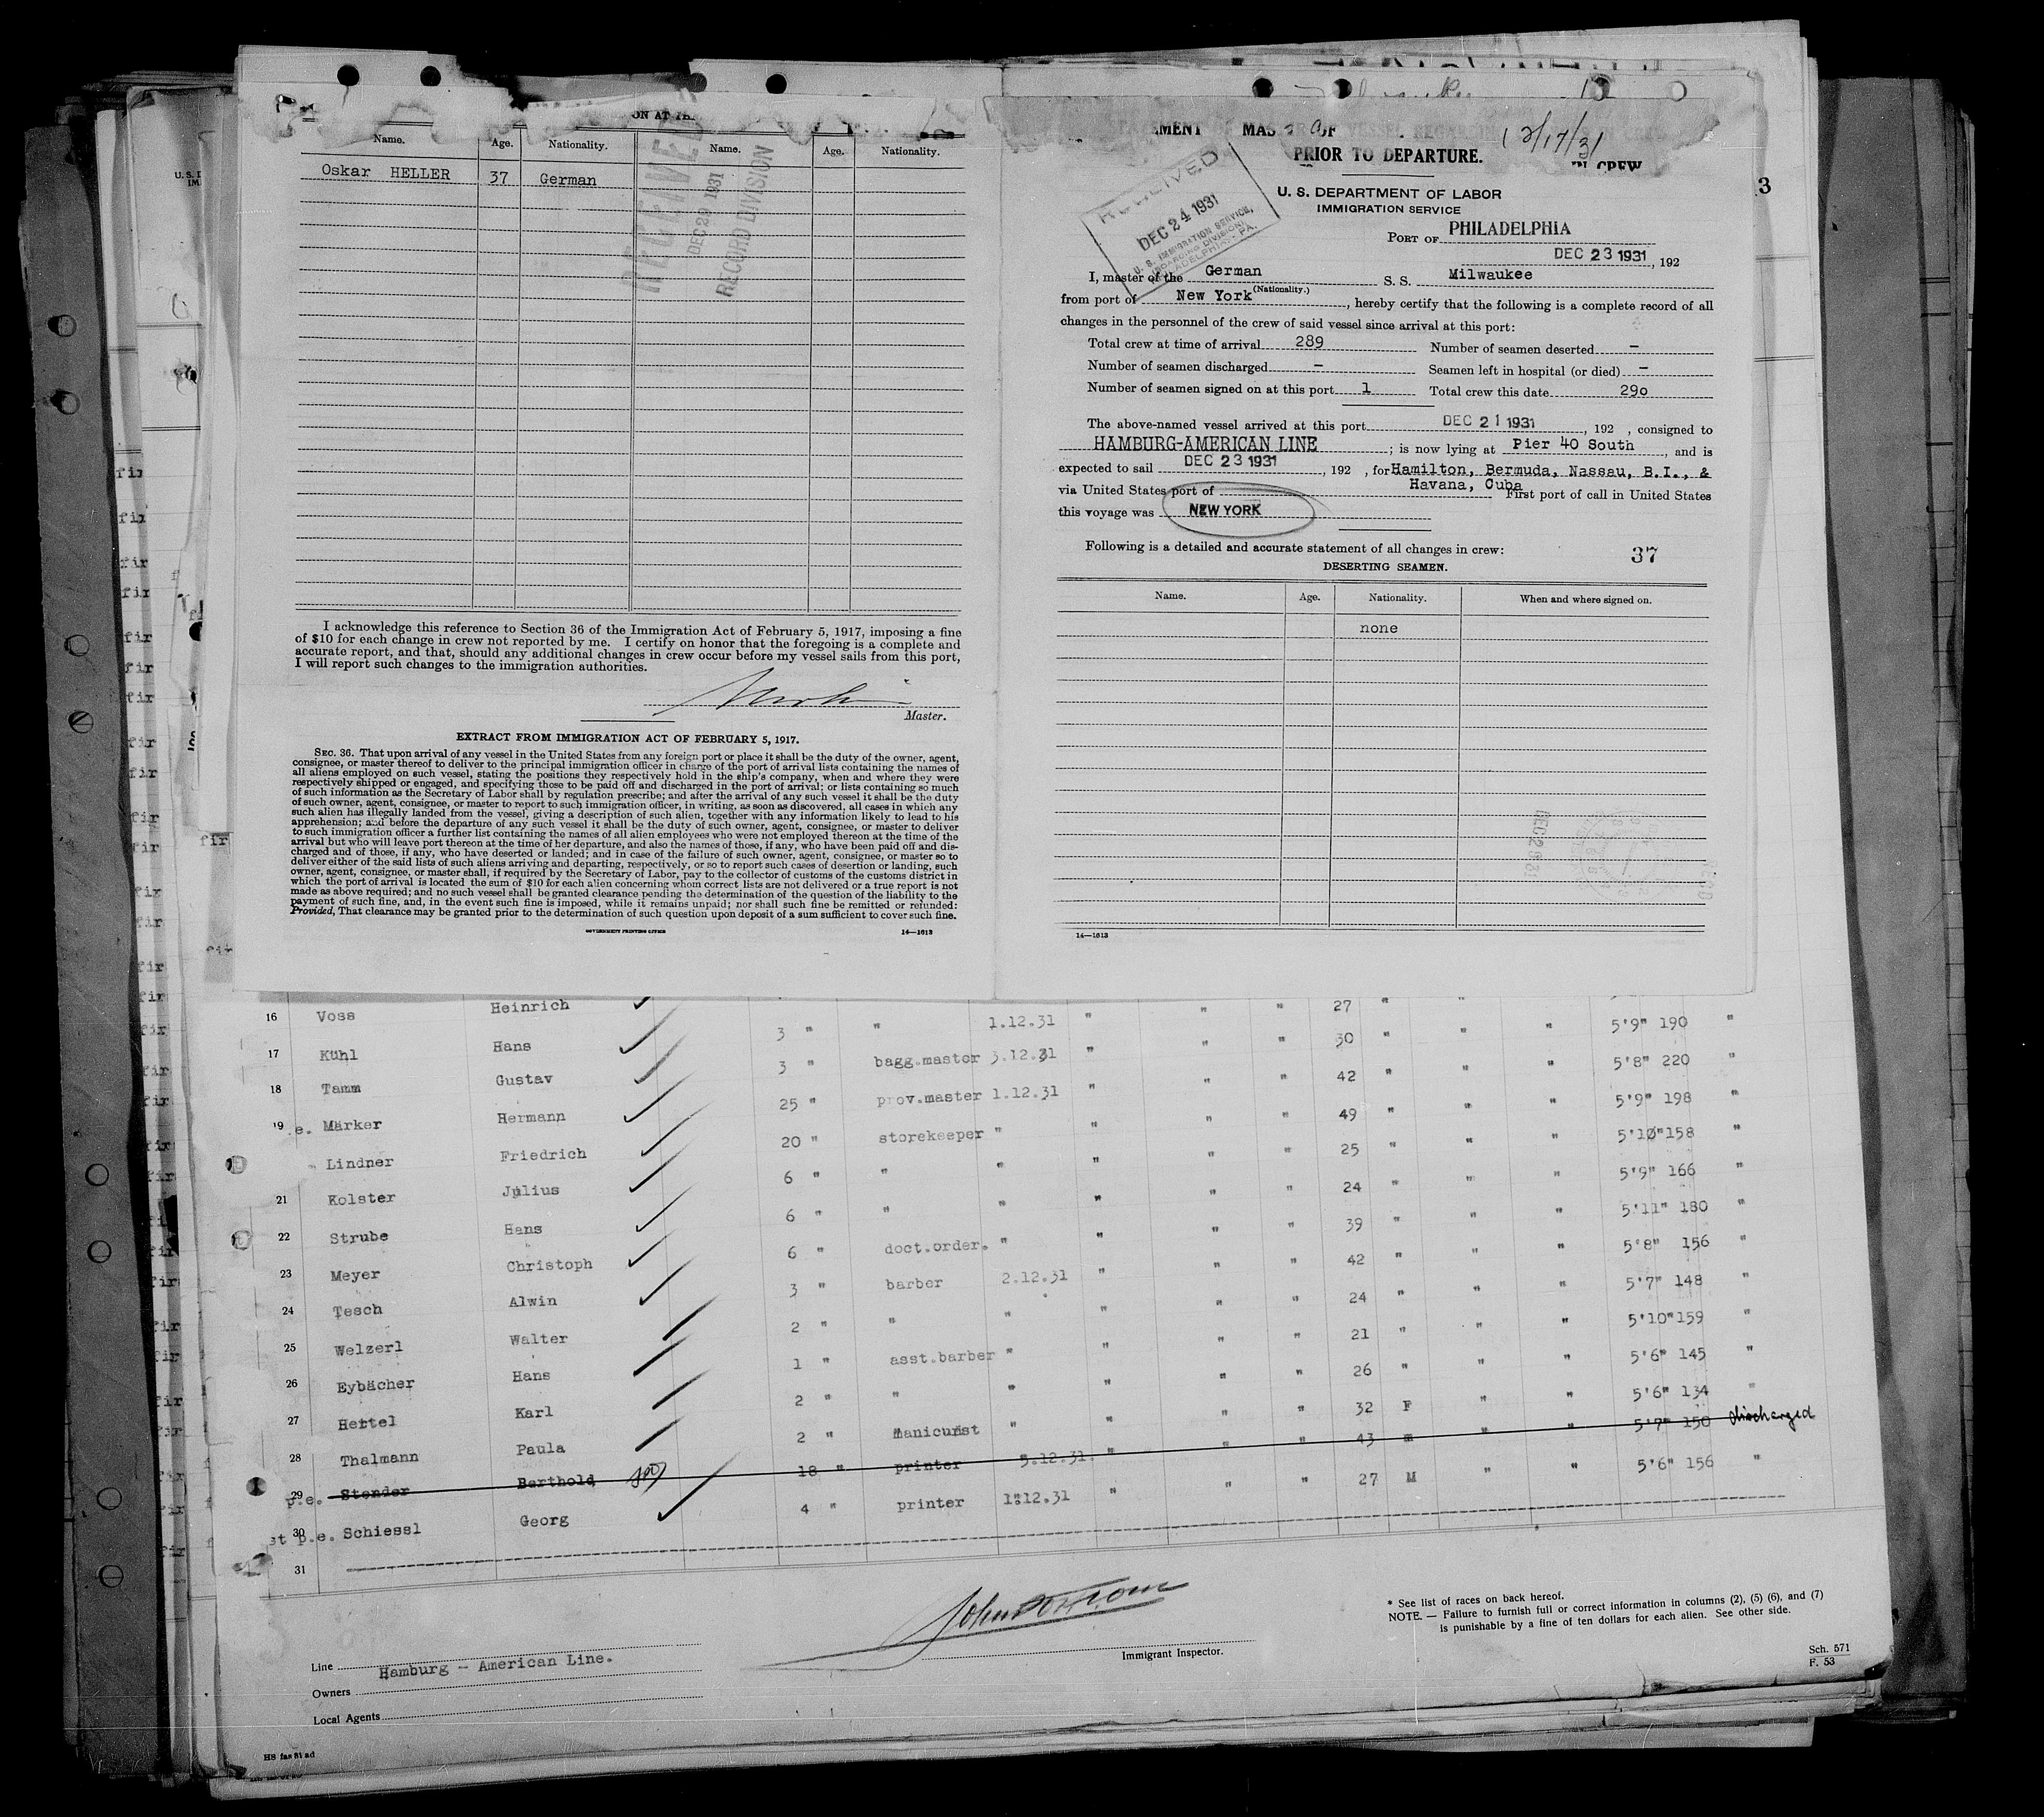 Name. Age. Nationality. Name. Age. Nationality.
Oskar HELLER 37 German
RECEIVED
DEC 29 1931
RECORD DIVISION
I acknowledge this reference to Section 36 of the Immigration Act of February 5, 1917, imposing a fine
of $10 for each change in crew not reported by me. I certify on honor that the foregoing is a complete and
accurate report, and that, should any additional changes in crew occur before my vessel sails from this port,
I will report such changes to the immigration authorities.
Master.
EXTRACT FROM IMMIGRATION ACT OF FEBRUARY 5, 1917.
SEC. 36. That upon arrival of any vessel in the United States from any foreign port or place it shall be the duty of the owner, agent,
consignee, or master thereof to deliver to the principal immigration officer in charge of the port of arrival lists containing the names of
all aliens employed on such vessel, stating the positions they respectively hold in the ship's company, when and where they were
respectively shipped or engaged, and specifying those to be paid off and discharged in the port of arrival; or lists containing so much
of such information as the Secretary of Labor shall by regulation prescribe; and after the arrival of any such vessel it shall be the duty
of such owner, agent, consignee, or master to report to such immigration officer, in writing, as soon as discovered, all cases in which any
such alien has illegally landed from the vessel, giving a description of such alien, together with any information likely to lead to his
apprehension; and before the departure of any such vessel it shall be the duty of such owner, agent, consignee, or master to deliver
to such immigration officer a further list containing the names of all alien employees who were not employed thereon at the time of the
arrival but who will leave port thereon at the time of her departure, and also the names of those, if any, who have been paid off and dis-
charged and of those, if any, who have deserted or landed; and in case of the failure of such owner, agent, consignee, or master so to
deliver either of the said lists of such aliens arriving and departing, respectively, or so to report such cases of desertion or landing, such
owner, agent, consignee, or master shall, if required by the Secretary of Labor, pay to the collector of customs of the customs district in
which the port of arrival is located the sum of $10 for each alien concerning whom correct lists are not delivered or a true report is not
made as above required; and no such vessel shall be granted clearance pending the determination of the question of the liability to the
payment of such fine, and, in the event such fine is imposed, while it remains unpaid; nor shall such fine be remitted or refunded:
Provided, That clearance may be granted prior to the determination of such question upon deposit of a sum sufficient to cover such fine.
GOVERNMENT PRINTING OFFICE 14—1613
12/17/31
PRIOR TO DEPARTURE.
U. S. DEPARTMENT OF LABOR
IMMIGRATION SERVICE
3
RECEIVED
DEC 24 1931
U. S. IMMIGRATION SERVICE,
(BOARDING DIVISION)
PHILADELPHIA, PA.
PORT OF PHILADELPHIA
DEC 23 1931, 192
I, master of the German S. S. Milwaukee
(Nationality.)
from port of New York, hereby certify that the following is a complete record of all
changes in the personnel of the crew of said vessel since arrival at this port:
Total crew at time of arrival 289 Number of seamen deserted –
Number of seamen discharged – Seamen left in hospital (or died) –
Number of seamen signed on at this port 1 Total crew this date 290
The above-named vessel arrived at this port DEC 21 1931, 192 , consigned to
HAMBURG-AMERICAN LINE ; is now lying at Pier 40 South, and is
expected to sail DEC 23 1931, 192 , for Hamilton, Bermuda, Nassau, B.I., &
Havana, Cuba
via United States port of First port of call in United States
this voyage was NEW YORK
Following is a detailed and accurate statement of all changes in crew: 37
DESERTING SEAMEN.
Name. Age. Nationality. When and where signed on.
none
14—1613
16 Voss Heinrich 3 " " 1.12.31 " " " 27 " " " 5'9" 190 "
17 Kühl Hans 3 " bagg.master 3.12.31 " " " 30 " " " 5'8" 220 "
18 Tamm Gustav 25 " prov.master 1.12.31 " " " 42 " " " 5'9" 198 "
19 Märker Hermann 20 " storekeeper " " " " 49 " " " 5'10" 158 "
Lindner Friedrich 6 " " " " " " 25 " " " 5'9" 166 "
21 Kolster Julius 6 " " " " " " 24 " " " 5'11" 180 "
22 Strube Hans 6 " doct.order. " " " " 39 " " " 5'8" 156 "
23 Meyer Christoph 3 " barber 2.12.31 " " " 42 " " " 5'7" 148 "
24 Tesch Alwin 2 " " " " " " 24 " " " 5'10" 159 "
25 Welzerl Walter 1 " asst.barber " " " " 21 " " " 5'6" 145 "
26 Eybächer Hans 2 " " " " " " 26 " " " 5'6" 134 "
27 Hertel Karl 2 " Manicurist " " " " 32 F " " 5'7" 150 discharged
28 Thalmann Paula
29 p.e. Stender Berthold 18 " printer 5.12.31 " " " 43 m " "
30 st p.e. Schiessl Georg 4 " printer 1.12.31 " " " 27 M " " 5'6" 156 "
31
Immigrant Inspector.
* See list of races on back hereof.
NOTE. — Failure to furnish full or correct information in columns (2), (5) (6), and (7)
is punishable by a fine of ten dollars for each alien. See other side.
Sch. 571
F. 53
Line
Hamburg - American Line.
Owners
Local Agents